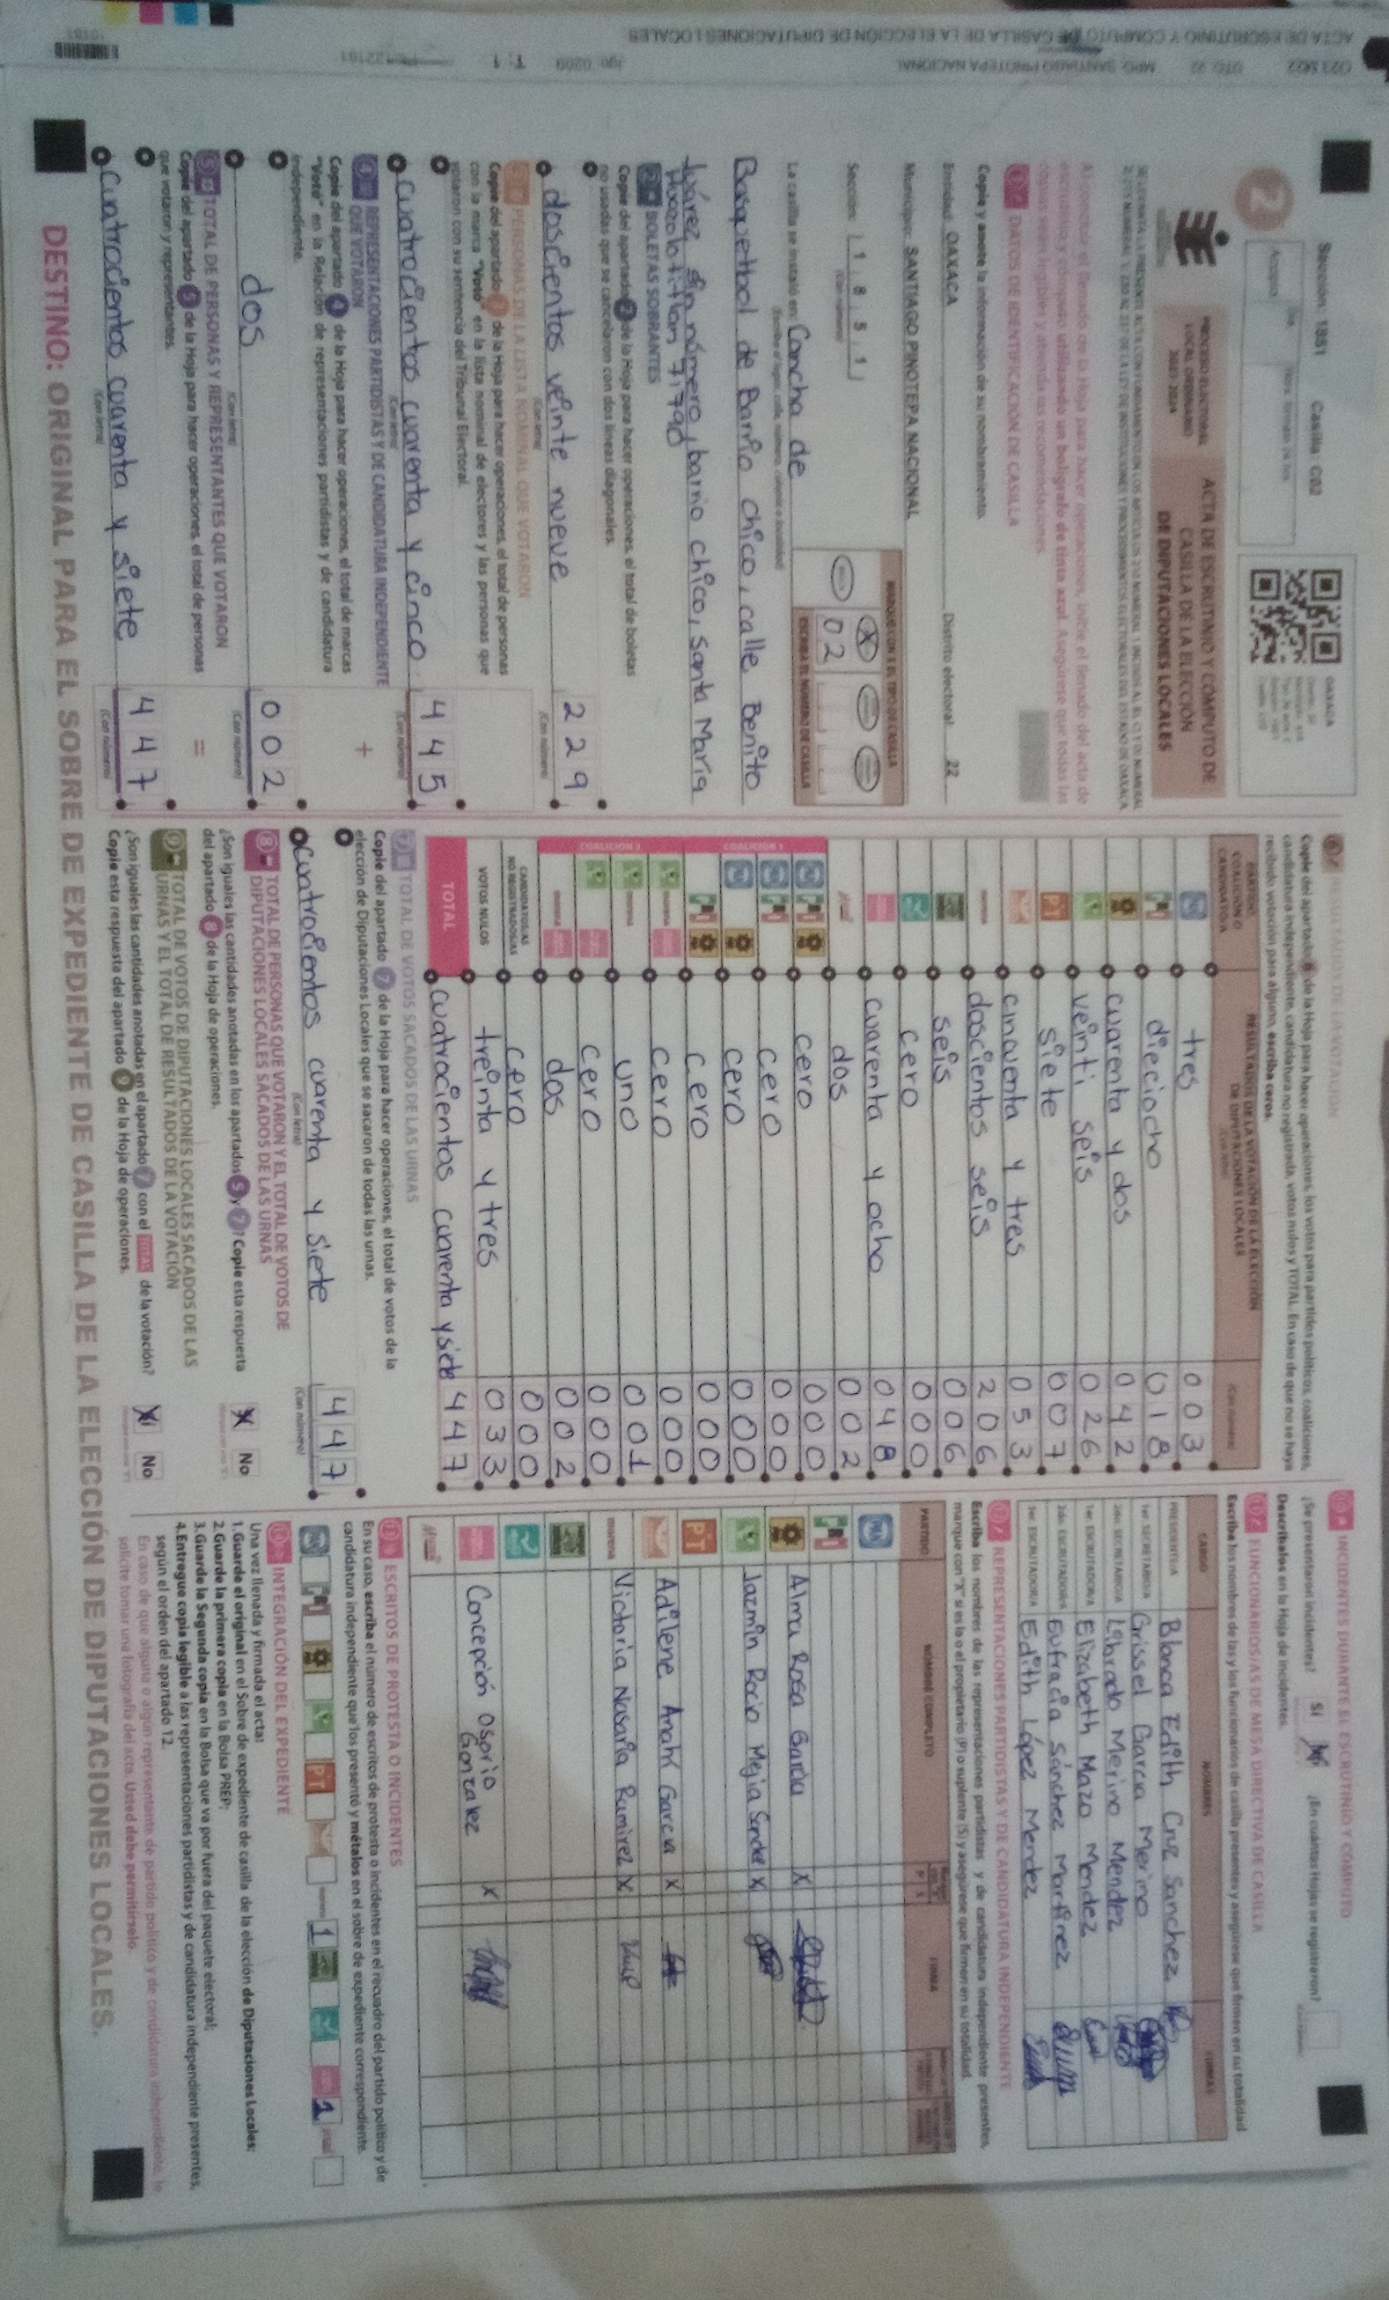 Sección: 1851 Casilla: C02
2
PROCESO ELECTORAL
LOCAL ORDINARIO
2023 - 2024
ACTA DE ESCRUTINIO Y CÓMPUTO DE
CASILLA DE LA ELECCIÓN
DE DIPUTACIONES LOCALES
OAXACA
Al concluir el llenado de la Hoja para hacer operaciones, inicie el llenado del acta de
escrutinio y cómputo utilizando un bolígrafo de tinta azul. Asegúrese que todas las
copias sean legibles y atienda las recomendaciones.
DATOS DE IDENTIFICACIÓN DE CASILLA
Copie y anote la información de su nombramiento.
Entidad: OAXACA Distrito electoral: 22
Municipio: SANTIAGO PINOTEPA NACIONAL
Sección: 1 8 5 1
(Con número)
MARQUE CON X EL TIPO DE CASILLA
X
ESCRIBA EL NÚMERO DE CASILLA
0 2
La casilla se instaló en: Cancha de
Basquetbol de Barrio chico, calle Benito
Juárez sin número, barrio chico, Santa María
BOLETAS SOBRANTES
Copie del apartado 2 de la Hoja para hacer operaciones, el total de boletas
no usadas que se cancelaron con dos líneas diagonales.
doscientos veinte nueve 2 2 9
(Con letra) (Con número)
PERSONAS DE LA LISTA NOMINAL QUE VOTARON
Copie del apartado 3 de la Hoja para hacer operaciones, el total de personas
con la marca "Votó" en la lista nominal de electores y las personas que
votaron con su sentencia del Tribunal Electoral.
cuatrocientos cuarenta y cinco 4 4 5
(Con letra) (Con número)
REPRESENTACIONES PARTIDISTAS Y DE CANDIDATURA INDEPENDIENTE
QUE VOTARON
+
Copie del apartado 4 de la Hoja para hacer operaciones, el total de marcas
"Votó" en la Relación de representaciones partidistas y de candidatura
independiente.
dos 0 0 2
(Con letra) (Con número)
5 TOTAL DE PERSONAS Y REPRESENTANTES QUE VOTARON
=
Copie del apartado 5 de la Hoja para hacer operaciones, el total de personas
que votaron y representantes.
cuatrocientos cuarenta y siete 4 4 7
(Con letra) (Con número)
RESULTADOS DE LA VOTACIÓN
Copie del apartado 6 de la Hoja para hacer operaciones, los votos para partidos políticos, coaliciones,
candidatura independiente, candidatura no registrada, votos nulos y TOTAL. En caso de que no se haya
recibido votación para alguno, escriba ceros.
PARTIDO,
COALICIÓN O
CANDIDATO/A
RESULTADOS DE LA VOTACIÓN DE LA ELECCIÓN
DE DIPUTACIONES LOCALES
PAN tres 0 0 3
PRI dieciocho 0 1 8
cuarenta y dos 0 4 2
veinti seis 0 2 6
PT siete 0 0 7
cincuenta y tres 0 5 3
morena doscientos seis 2 0 6
seis 0 0 6
cero 0 0 0
cuarenta y ocho 0 4 8
dos 0 0 2
COALICIÓN 1
cero 0 0 0
cero 0 0 0
cero 0 0 0
cero 0 0 0
COALICIÓN 2
cero 0 0 0
uno 0 0 1
cero 0 0 0
dos 0 0 2
CANDIDATOS/AS
NO REGISTRADOS/AS cero 0 0 0
VOTOS NULOS treinta y tres 0 3 3
TOTAL cuatrocientos cuarenta y siete 4 4 7
7 TOTAL DE VOTOS SACADOS DE LAS URNAS
Copie del apartado 7 de la Hoja para hacer operaciones, el total de votos de la
elección de Diputaciones Locales que se sacaron de todas las urnas.
cuatrocientos cuarenta y siete 4 4 7
(Con letra) (Con número)
8 TOTAL DE PERSONAS QUE VOTARON Y EL TOTAL DE VOTOS DE
DIPUTACIONES LOCALES SACADOS DE LAS URNAS
¿Son iguales las cantidades anotadas en los apartados 5 y 7? Copie esta respuesta
del apartado 8 de la Hoja de operaciones.
X No
9 TOTAL DE VOTOS DE DIPUTACIONES LOCALES SACADOS DE LAS
URNAS Y EL TOTAL DE RESULTADOS DE LA VOTACIÓN
¿Son iguales las cantidades anotadas en el apartado 7 con el TOTAL de la votación?
Copie esta respuesta del apartado 9 de la Hoja de operaciones.
X No
INCIDENTES DURANTE EL ESCRUTINIO Y CÓMPUTO
¿Se presentaron incidentes? Sí X ¿En cuántas Hojas se registraron?
Descríbalos en la Hoja de incidentes.
FUNCIONARIOS/AS DE MESA DIRECTIVA DE CASILLA
Escriba los nombres de las y los funcionarios de casilla presentes y asegúrese que firmen en su totalidad
CARGO NOMBRES FIRMAS
PRESIDENTE/A Blanca Edith Cruz Sanchez
1er. SECRETARIO/A Grissel Garcia Merino
2do. SECRETARIO/A Librado Merino Mendez
1er. ESCRUTADOR/A Elizabeth Mazo Mendez
2do. ESCRUTADOR/A Eufracia Sánchez Martinez
3er. ESCRUTADOR/A Edith López Mendez
REPRESENTACIONES PARTIDISTAS Y DE CANDIDATURA INDEPENDIENTE
Escriba los nombres de las representaciones partidistas y de candidatura independiente presentes,
marque con "X" si es la o el propietario (P) o suplente (S) y asegúrese que firmen en su totalidad.
PARTIDO NOMBRE COMPLETO FIRMA
Alma Rosa Garcia X
Jazmin Rocio Mejia Sanchez X
PT
Adilene Anahi Garcia X
morena Victoria Nasaria Ramirez X
Concepción Osorio
Gonzalez X
ESCRITOS DE PROTESTA O INCIDENTES
En su caso, escriba el número de escritos de protesta o incidentes en el recuadro del partido político y de
candidatura independiente que los presentó y métalos en el sobre de expediente correspondiente.
PAN PRI PT 1 1
INTEGRACIÓN DEL EXPEDIENTE
Una vez llenada y firmada el acta:
1. Guarde el original en el Sobre de expediente de casilla de la elección de Diputaciones Locales;
2. Guarde la primera copia en la Bolsa PREP;
3. Guarde la Segunda copia en la Bolsa que va por fuera del paquete electoral;
4. Entregue copia legible a las representaciones partidistas y de candidatura independiente presentes,
según el orden del apartado 12.
En caso de que alguna o algún representante de partido político y de candidatura independiente, le
solicite tomar una fotografía del acta. Usted debe permitírselo.
DESTINO: ORIGINAL PARA EL SOBRE DE EXPEDIENTE DE CASILLA DE LA ELECCIÓN DE DIPUTACIONES LOCALES.
ACTA DE ESCRUTINIO Y CÓMPUTO DE CASILLA DE LA ELECCIÓN DE DIPUTACIONES LOCALES
MPO. SANTIAGO PINOTEPA NACIONAL